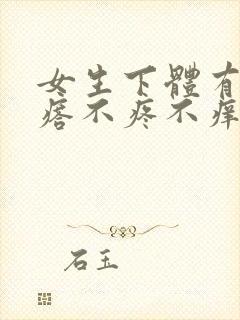 女生下體有
瘩不疼不痒
石玉